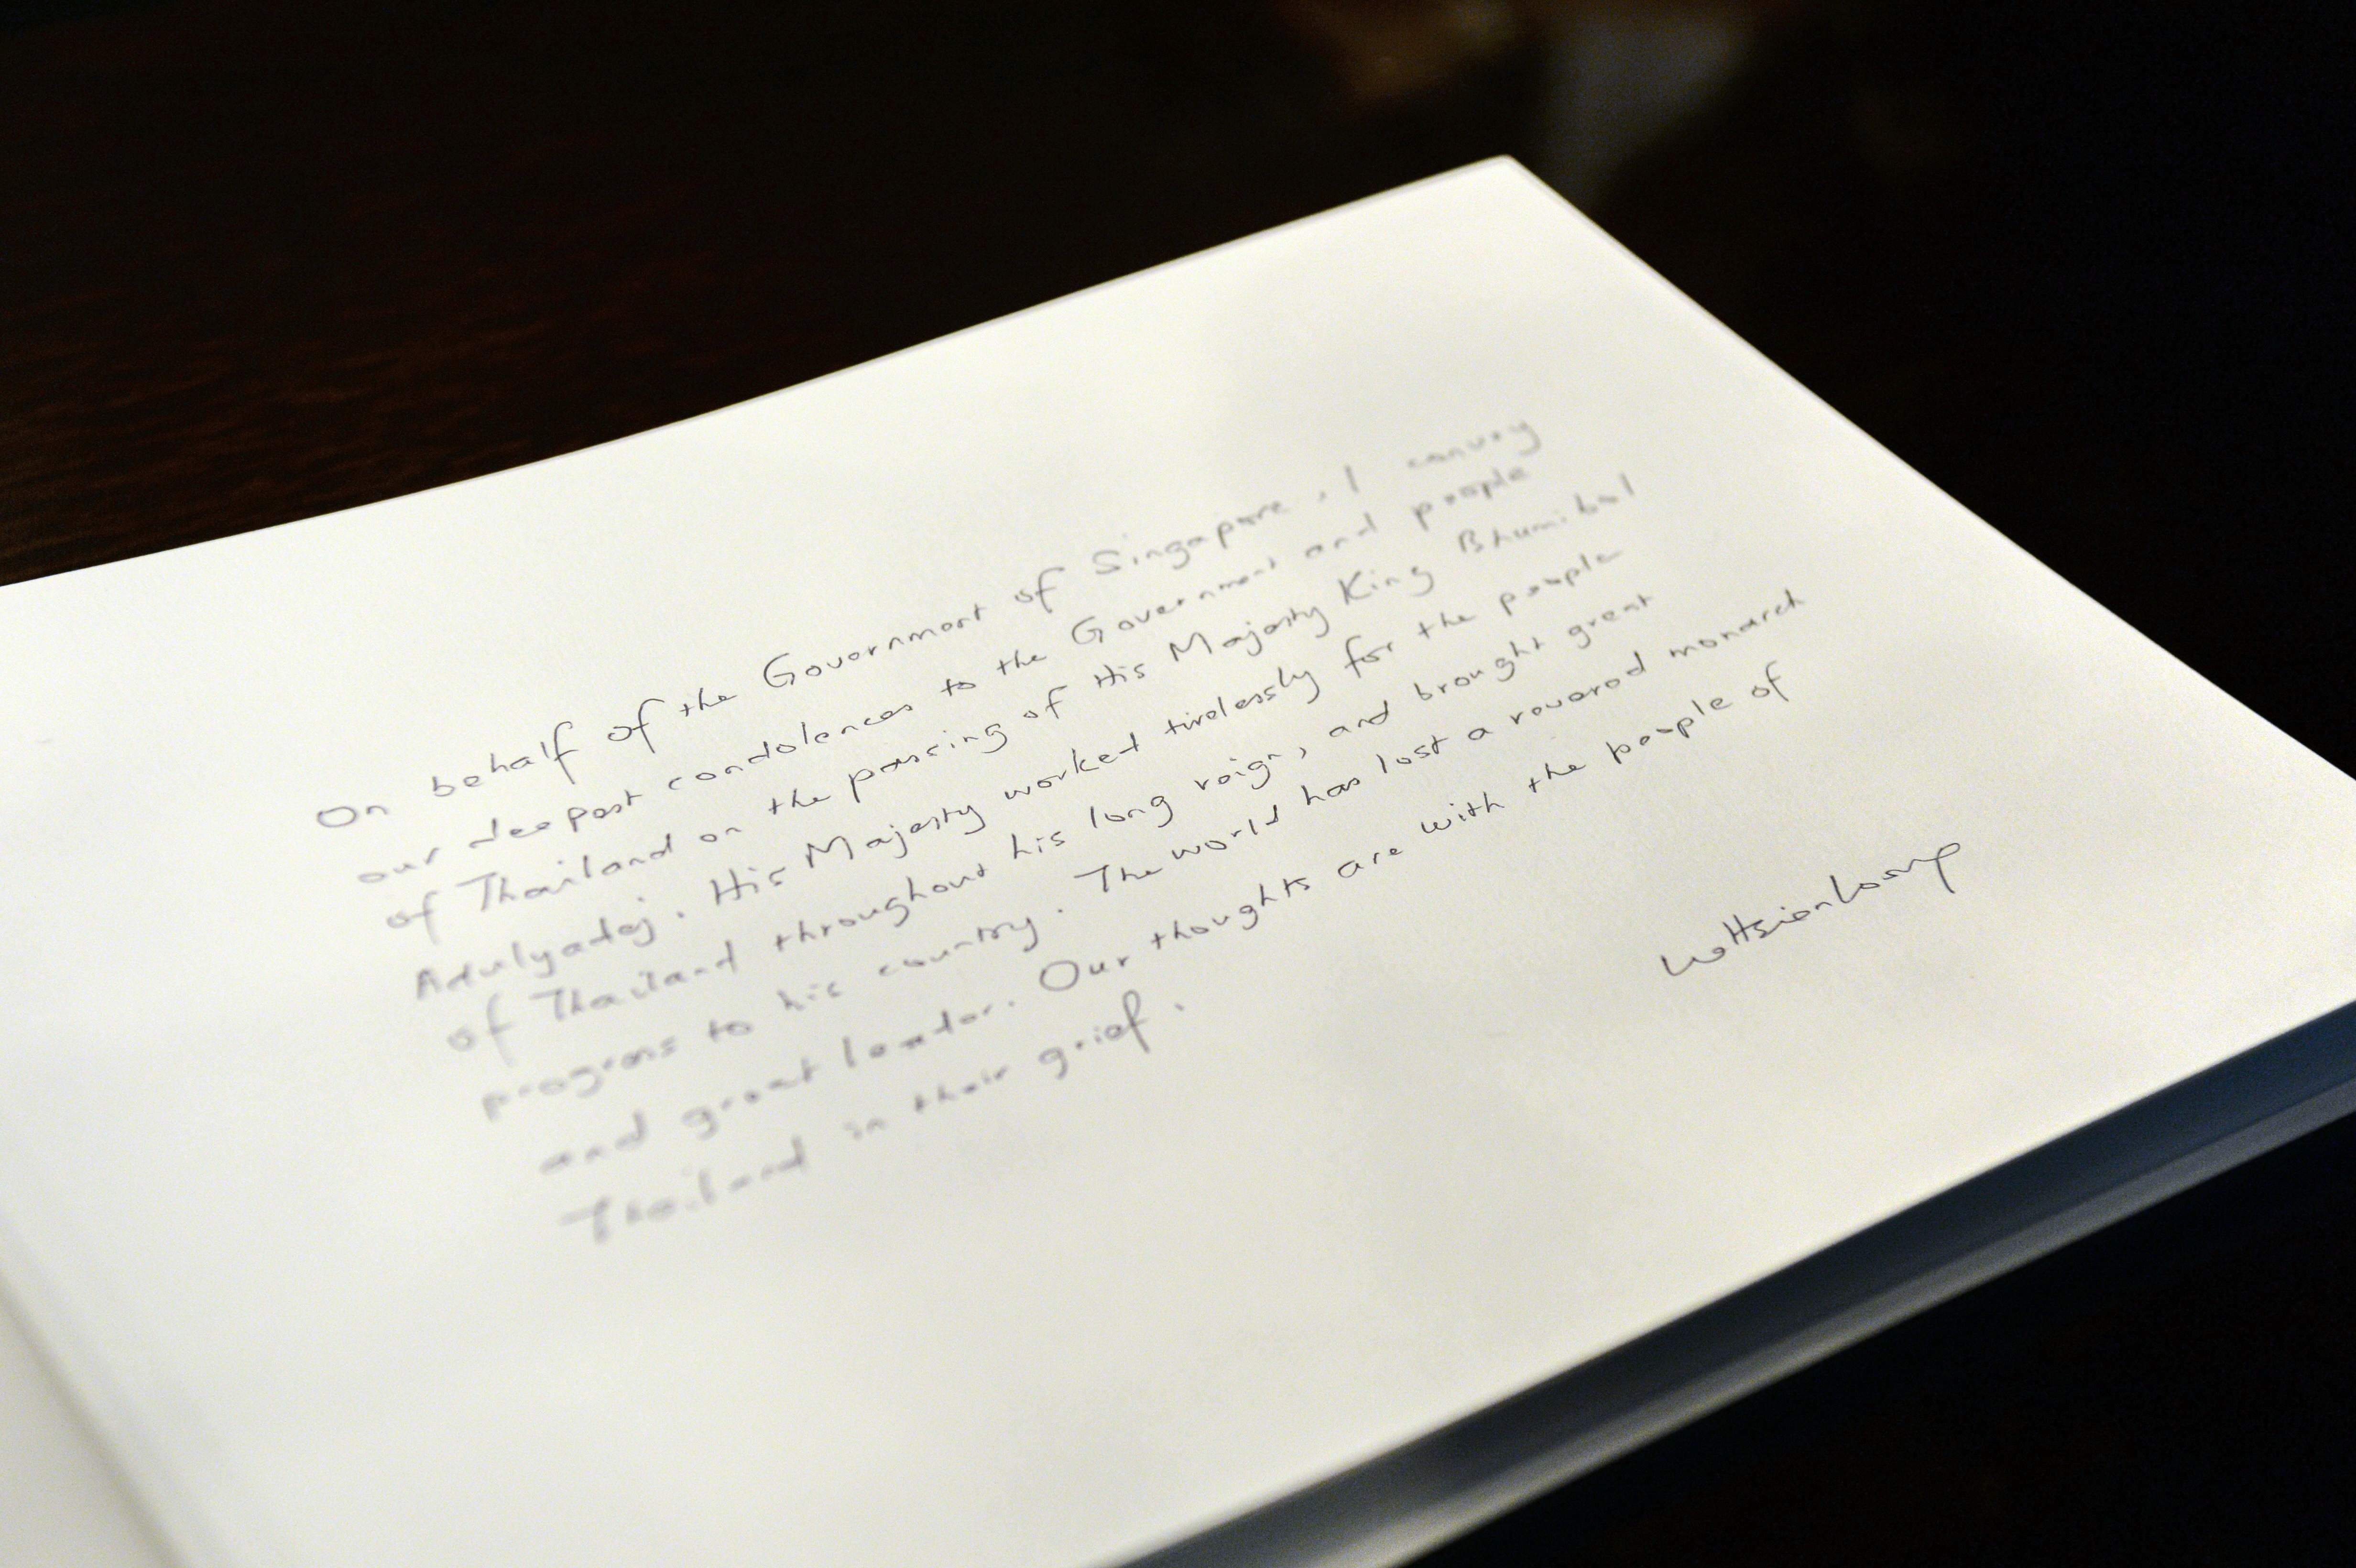 On behalf of the Government of Singapore, I convey
our deepest condolences to the Government and people
of Thailand on the passing of His Majesty King Bhumibol
Adulyadej. His Majesty worked tirelessly for the people
of Thailand throughout his long reign, and brought great
progress to his country. The world has lost a revered monarch
and great leader. Our thoughts are with the people of
Thailand in their grief.
Lee Hsien Loong